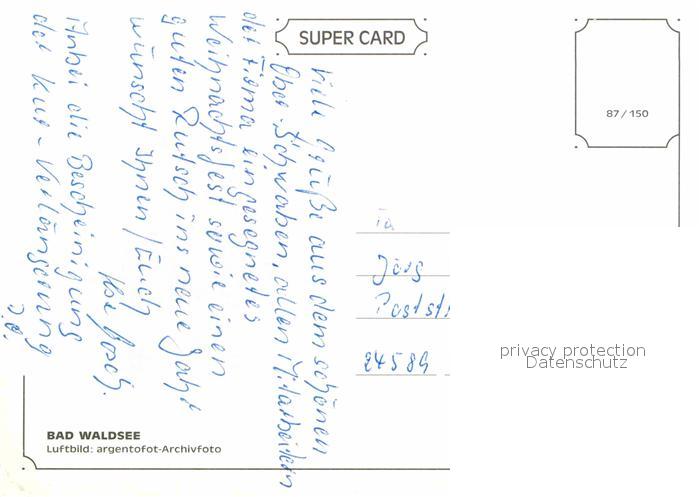 SUPER CARD
87/150
Viele Grüße aus dem schönen
Ober-Schwaben, allen Mitarbeitern
der Firma ein gesegnetes
Weihnachtsfest sowie einen
guten Rutsch ins neue Jahr
wünscht Ihnen / Euch
Anbei die Bescheinigung
der Kur-Verlängerung
Fa
Jörg
Poststr
24589
privacy protection
Datenschutz
BAD WALDSEE
Luftbild: argentofot-Archivfoto